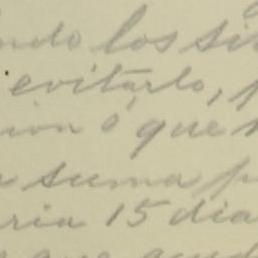 los si
evitarlo, p
ion ó que
suma p
ria 15 dia